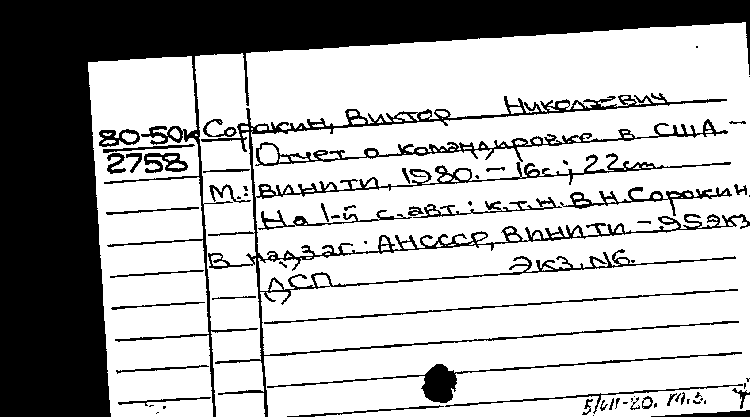 80-50к Сорокин, Виктор Николаевич
2758 Отчет о командировке в США.-
М.: ВИНИТИ, 1980. - 16с.; 22см.
На 1-й с. авт.: к.т.н. В.Н. Сорокин
В надзаг.: АН СССР, ВИНИТИ - 95 экз
ДСП. Экз. №6.